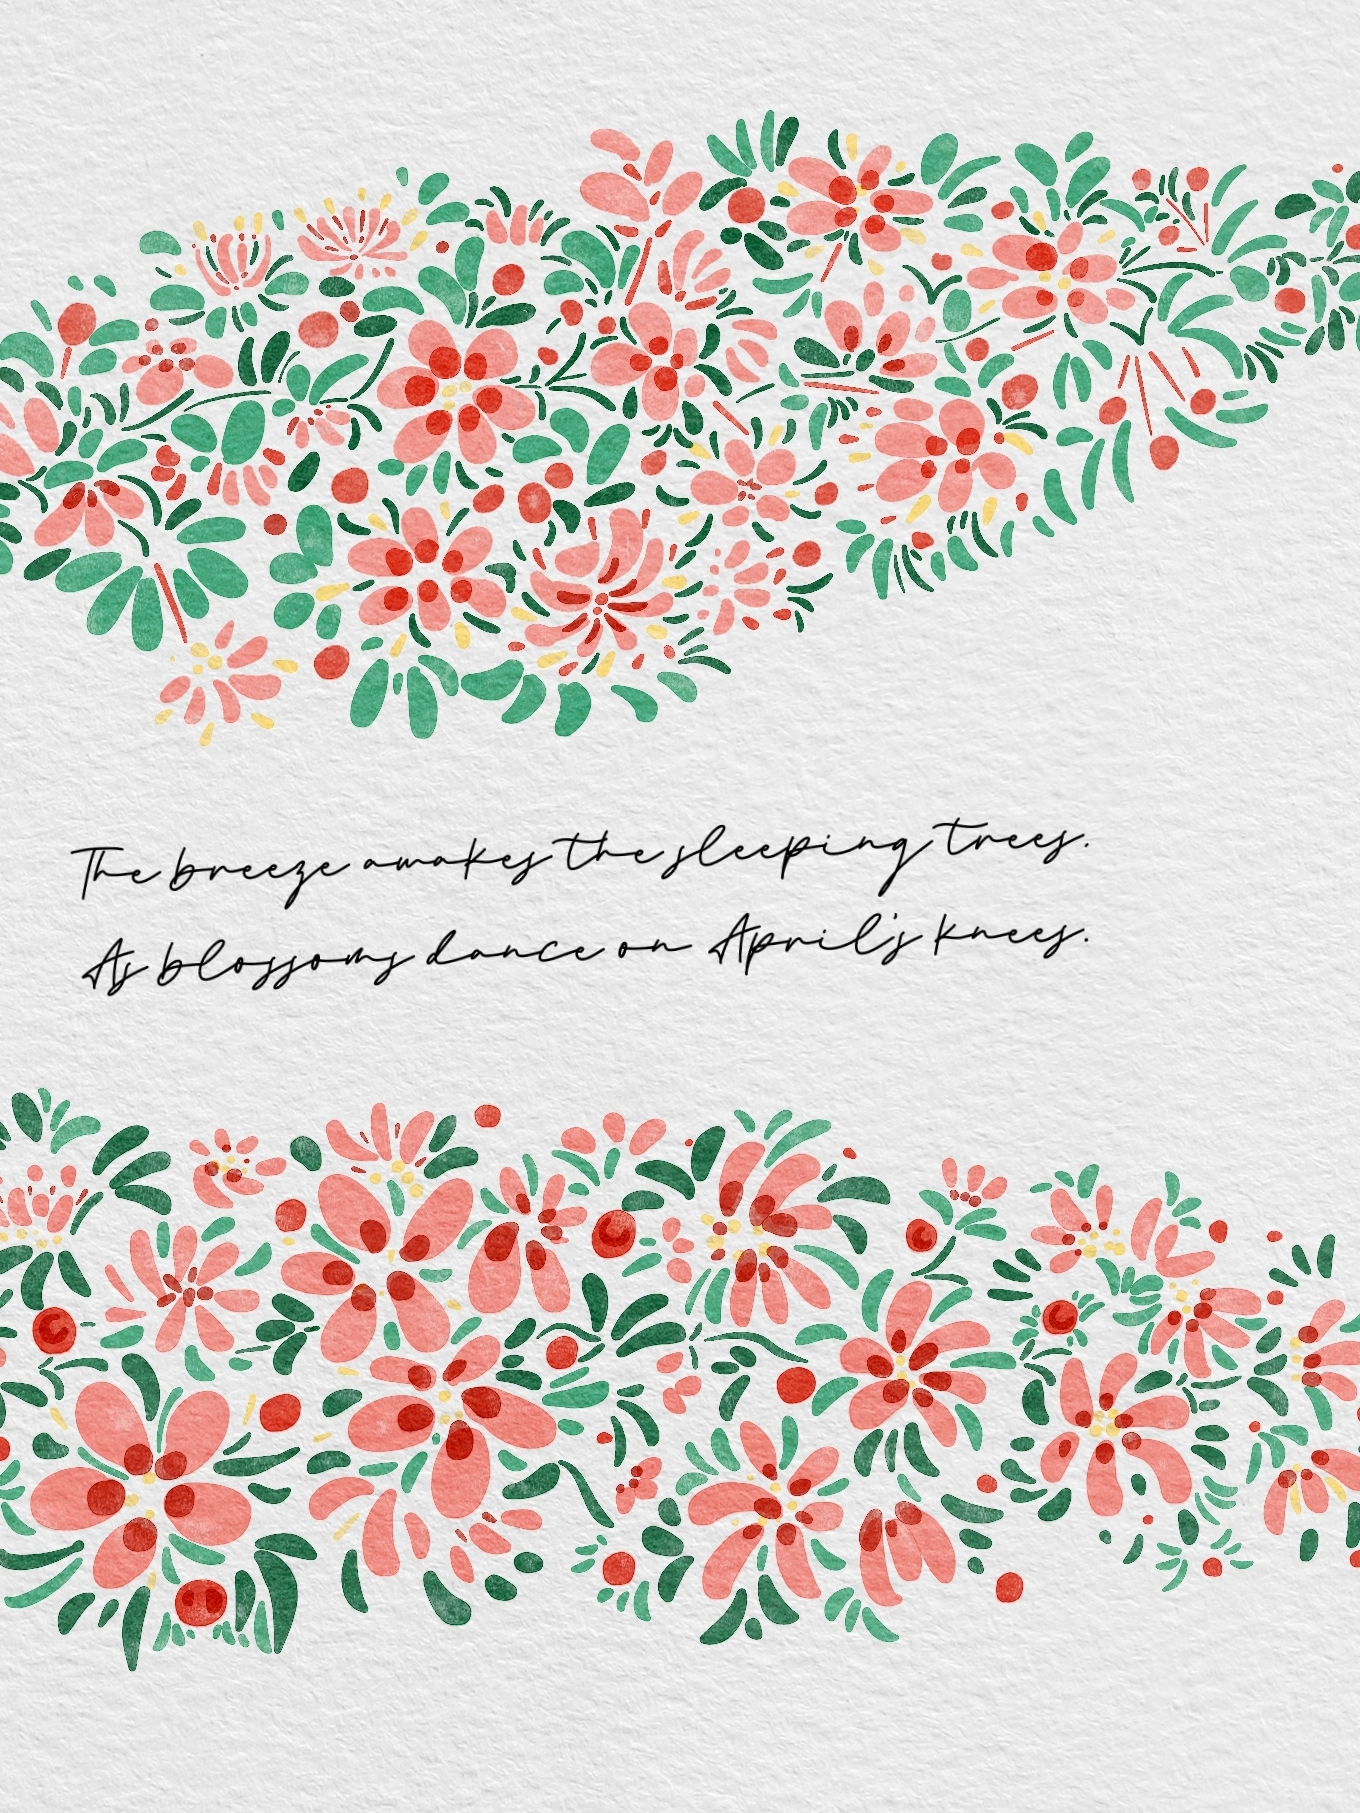 The breeze awakes the sleeping trees.
As blossoms dance on April's knees.